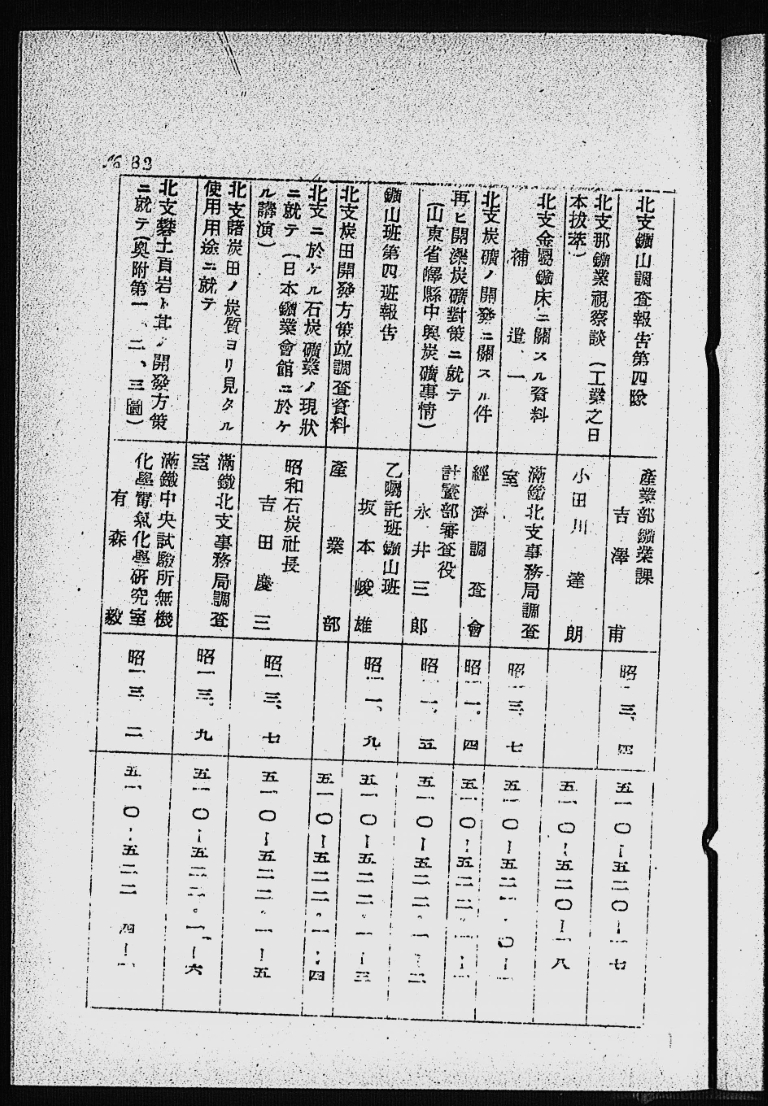 北支鑛山調査報告第四
產業部鑛業課
吉澤甫
昭一三、四
五一〇ー五二〇ー一七
北支那鑛業視察談(工業之日
本拔萃)
小田川達朗
五一〇ー五二〇ー一八
北支金屬鑛床ニ關スル資料
補遺一
滿鐵北支事務局調査
室
昭一三、七
北支炭礦ノ開發ニ關スル件
經濟調査會
昭一一、四
再ヒ開灤炭礦對策ニ就テ
(山東省嶧縣中興炭礦事情)
計畫部審査役
永井三郎
昭一一、五
五一〇ー五二二・一ー二
鑛山班第四班報告
乙囑託班鑛山班
坂本峻雄
昭一一、九
五一〇ー五二二・一ー三
北支炭田開發方策竝調査資料
產業部
五一〇ー五二二・一ー四
北支ニ於ケル石炭礦業ノ現狀
ニ就テ(日本鑛業會館ニ於ケ
ル講演)
昭和石炭社長
吉田慶三
昭一三、七
五一〇ー五二二・一ー五
北支諸炭田ノ炭質ヨリ見タル
使用用途ニ就テ
滿鐵北支事務局調査
室
昭一三、九
五一〇ー五二二・一ー六
北支礬土頁岩ト其ノ開發方策
ニ就テ(奧附第一、二、三圖)
滿鐵中央試驗所無機
化學電氣化學硏究室
有森毅
昭一三、二
五一〇ー五二二・四ー一